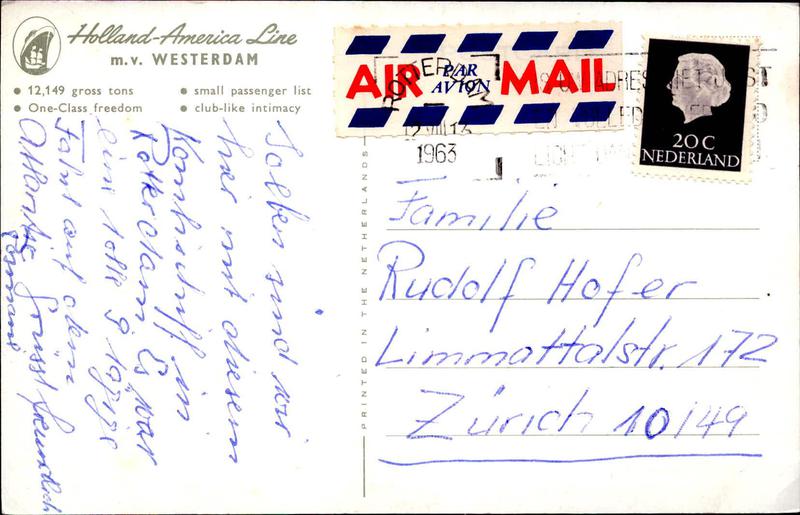 Holland-America Line
m.v. WESTERDAM
• 12,149 gross tons • small passenger list
• One-Class freedom • club-like intimacy
AIR PAR AVION MAIL
ROTTERDAM
12.VIII.13
1963
20 C
NEDERLAND
PRINTED IN THE NETHERLANDS
Soeben sind wir
hier mit diesem
Kombischiff in
Rotterdam Es war
eine tolle 9 tägige
Fahrt auf dem
Atlantic grüsst freundlich
Familie
Rudolf Hofer
Limmattalstr. 172
Zürich 10/49